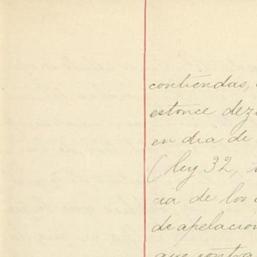 contiendas,
estonce dez
en dia de
(ley 32,
cia de los
de apelacion
que contra